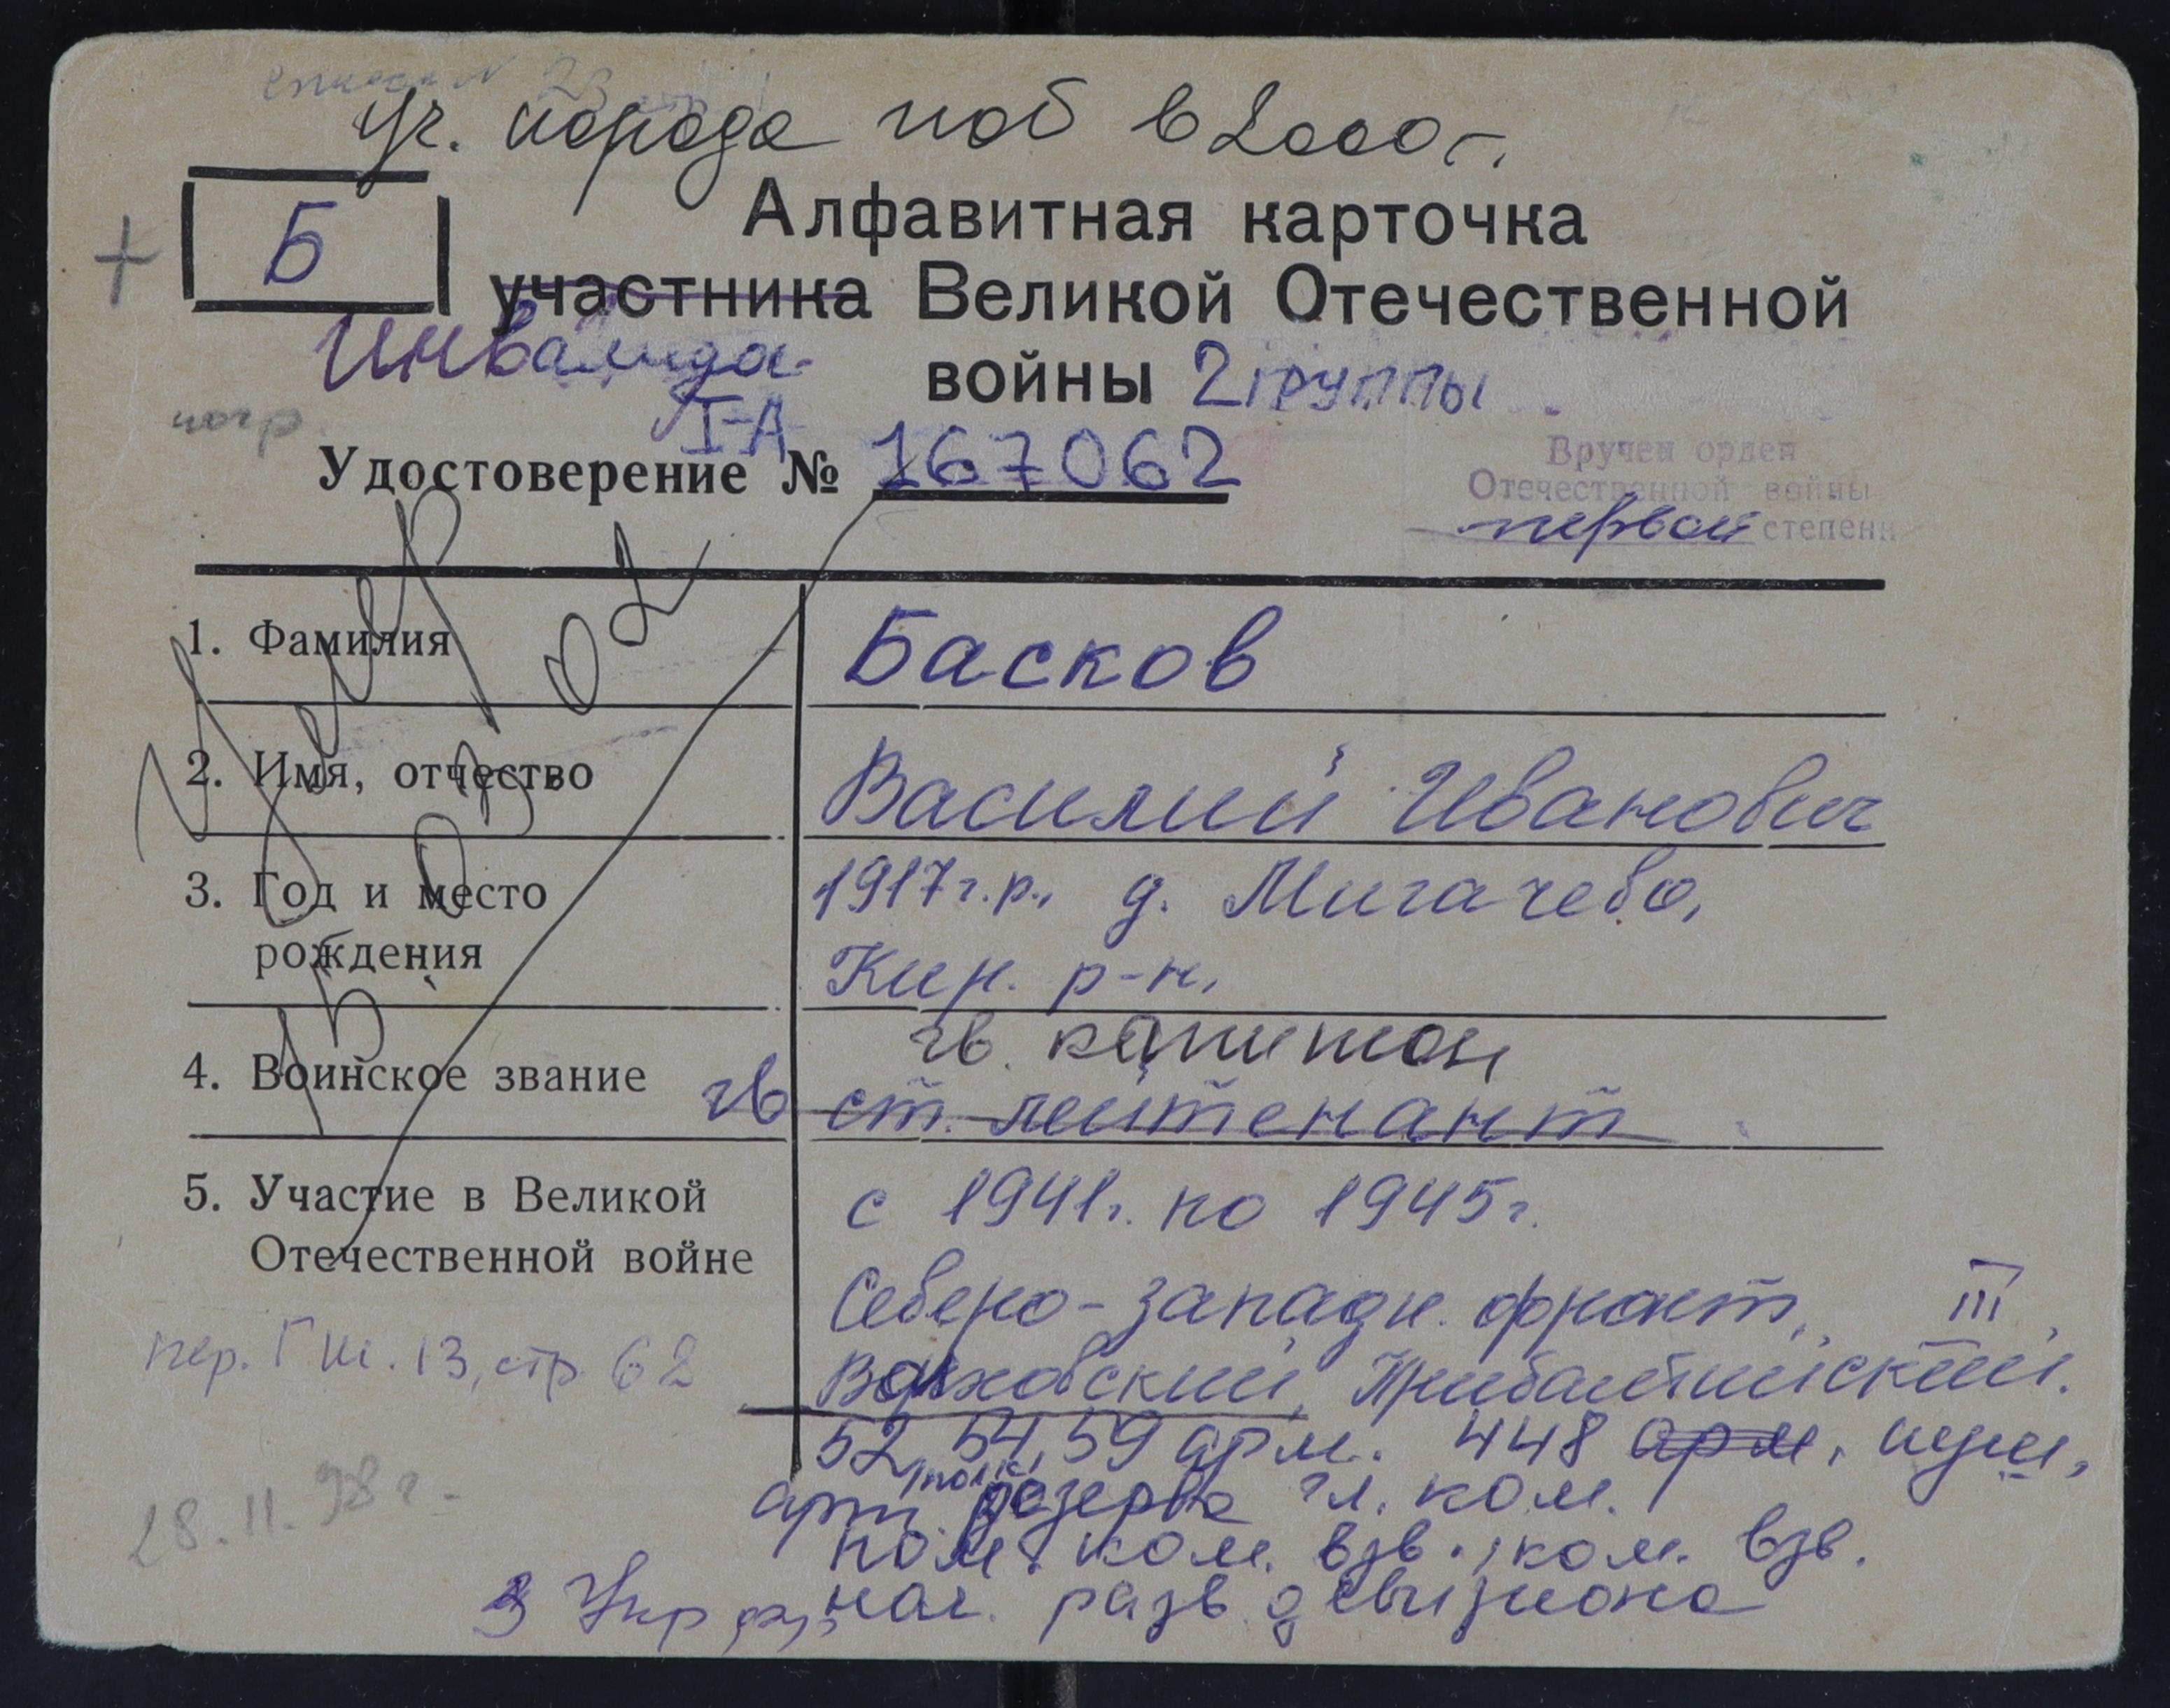 Уч. парада поб в 2000 г.
Б
Алфавитная карточка
участника Великой Отечественной
Инвалида
войны 2 группы
I-А
Удостоверение № 167062
Вручен орден
Отечественной войны
первой степени
1. Фамилия Басков
2. Имя, отчество Василий Иванович
3. Год и место 1917 г.р., д. Мигачево,
рождения Кир. р-н,
гв. капитан
4. Воинское звание гв ст. лейтенант
5. Участие в Великой с 1941г. по 1945г.
Отечественной войне
Северо-западн. фронт, III
Волховский, Прибалтийский.
пер. Г ш. 13, стр. 62
52, 54, 59 арм. 448 арм, пуш,
полк
арт. резерва гл. ком.
28.11.98 г.
пом. ком. взв., ком. взв.
3 Укр фр, нач. разв дивизиона